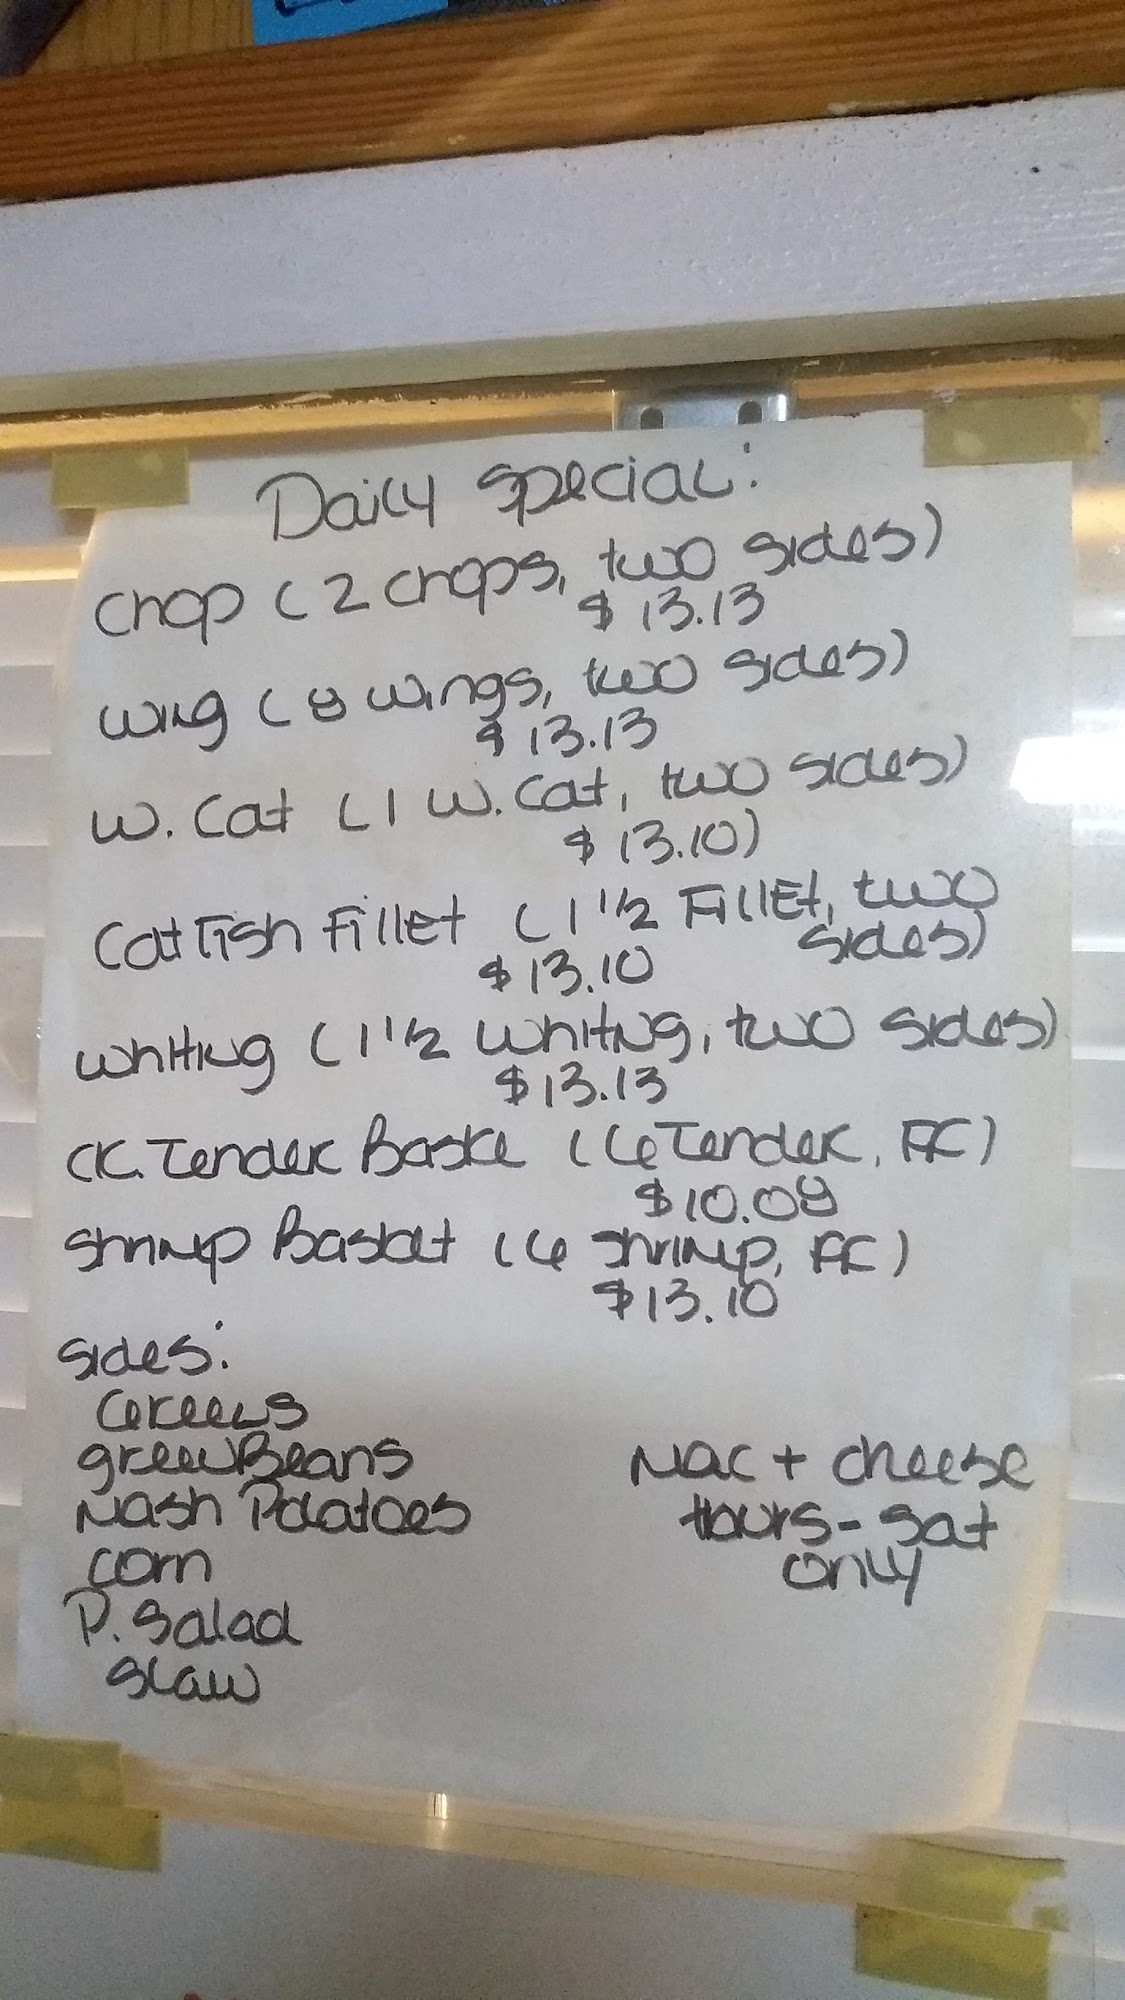 Daily Special:
Chop (2 chops, two sides)
$13.13
Wing (8 wings, two sides)
$13.13
W. Cat (1 W. Cat, two sides)
$13.10)
Catfish Fillet (1 1/2 Fillet, two
sides)
$13.10
Whiting (1 1/2 Whiting, two sides)
$13.13
CK. Tender Baske (6 Tender, FF)
$10.08
Shrimp Basket (6 shrimp, FF)
$13.10
Sides:
Greens
green Beans
Mash Potatoes
corn
P. Salad
Slaw
Mac + cheese
thurs - Sat
only